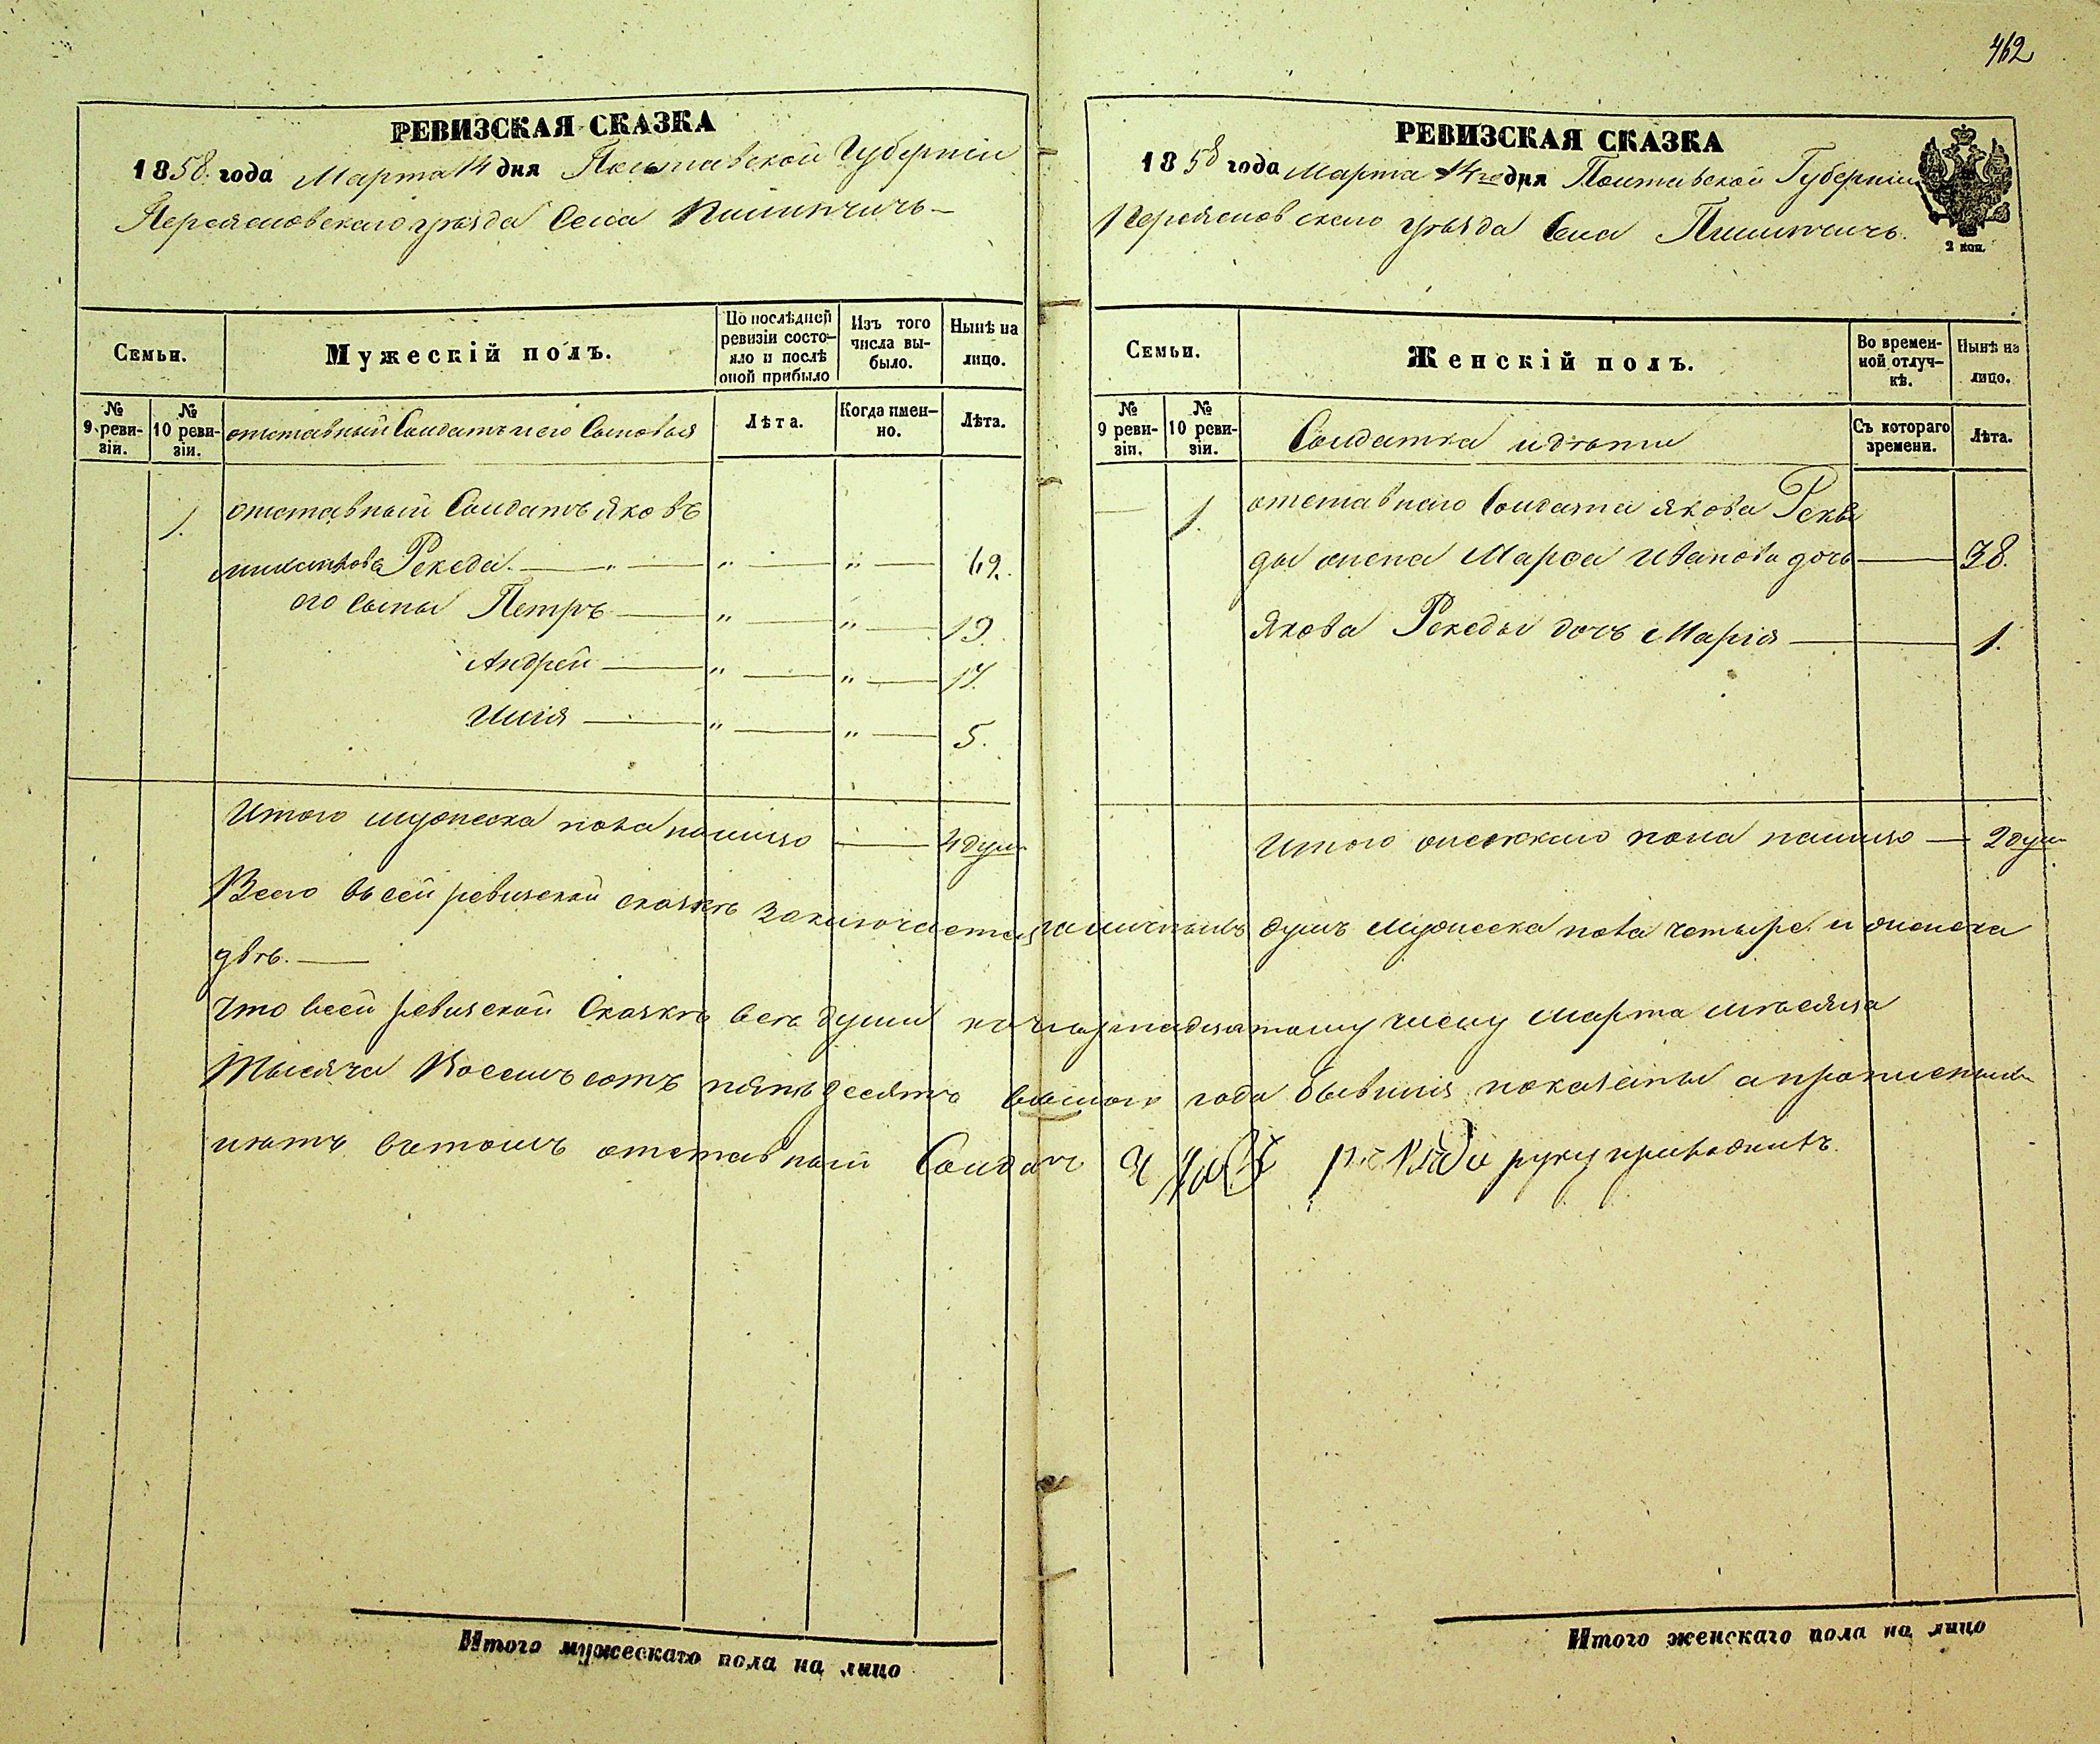 462
РЕВИЗСКАЯ СКАЗКА
1858. года Марта 14 дня Полтавской Губерніи
Переяславскаго уѣзда Села
Семьи.
Мужескій полъ.
По послѣдней ревизіи состояло и послѣ оной прибыло
Изъ того числа выбыло.
Нынѣ на лицо.
№ 9 реви-зіи.
№ 10 реви-зіи.
отставный Солдатъ и его Сыновья
Лѣта.
Когда имен-но.
Лѣта.
1. отставный Солдатъ Яковъ
Рекеда. — " — " — " — 42.
его сыны Петръ — " — " — 19.
Андрей — " — " — 17.
Илія — " — " — 5.
Итого мужеска пола налицо — 4 душ
РЕВИЗСКАЯ СКАЗКА
1858 года Марта 14го дня Полтавской Губерніи
Переяславскаго уѣзда Села
2 коп.
Семьи.
Женскій полъ.
Во времен-ной отлуч-кѣ.
Нынѣ на лицо.
№ 9 реви-зіи.
№ 10 реви-зіи.
Солдатка и дѣти
Съ котораго времени.
Лѣта.
— 1. отставнаго Солдата Якова Реке
ды жена Марфа Иванова дочь — 38.
Якова Рекеды дочь Марія — 1.
Итого женскаго пола налицо — 2 душ
Всего въ сей ревизской сказкѣ заключается наличныхъ душъ мужеска пола четыре и женска
двѣ. —
Что всей ревизской Сказкѣ всѣ души по четырнадцатому числу Марта мѣсяца
Тысяча Восемь сотъ пятьдесятъ восмого года бывшія показаны а прописныхъ
нѣтъ вътомъ отставный Солдатъ Яковъ Рекеда руку приложилъ.
Итого мужескаго пола на лицо
Итого женскаго пола на лицо